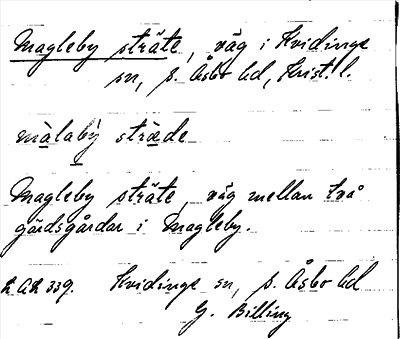 Magleby sträte, väg i Kvidinge
sn, S. Åsbo hd, Krist. l.
màlabý sträde
Magleby sträte, väg mellan två
gärdsgårdar i Magleby.
LAL 339. Kvidinge sn, S. Åsbo hd
G. Billing